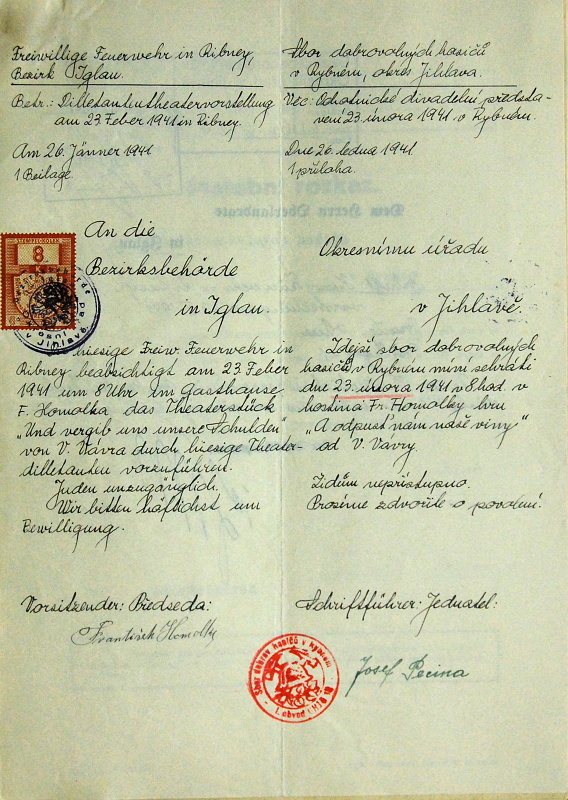 Freiwillige Feuerwehr in Ribney,
Bezirk Iglau.
Betr.: Dilletantentheatervorstellung
am 23. Feber 1941 in Ribney.
Am 26. Jänner 1941
1 Beilage
An die
Bezirksbehörde
in Iglau.
hiesige Freiw. Feuerwehr in
Ribney beabsichtigt am 23. Feber
1941 um 8 Uhr im Gasthause
F. Homolka das Theaterstück
"Und vergib uns unsere Schulden"
von V. Vávra durch hiesige Theater-
dilletanten vorzuführen.
Juden unzugänglich.
Wir bitten höflichst um
Bewilligung.
Sbor dobrovolných hasičů
v Rybném, okres Jihlava.
Věc: Ochotnické divadelní předsta-
vení 23. února 1941 v Rybném.
Dne 26. ledna 1941.
1 příloha.
Okresnímu úřadu
v Jihlavě.
Zdejší sbor dobrovolných
hasičů v Rybném míní sehráti
dne 23. února 1941 v 8 hod. v
hostinci Fr. Homolky hru
"A odpusť nám naše viny"
od V. Vávry.
Židům nepřístupno.
Prosíme zdvořile o povolení.
Vorsitzender: Předseda:
František Homolka
Schriftführer: Jednatel:
Josef Pecina
STEMPELMARKE
8
Sbor dobrov. hasičů v Rybném